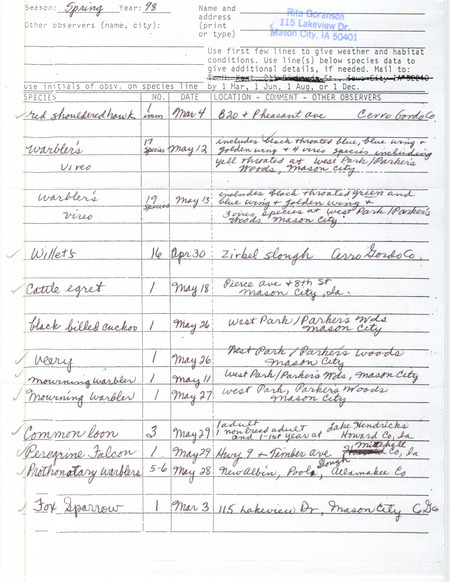 Season: Spring Year: 98
Name and address (print or type)
Rita Goranson
115 Lakeview Dr.
Mason City, IA 50401
Other observers (name, city):
Use first few lines to give weather and habitat
conditions. Use line(s) below species data to
give additional details, if needed. Mail to:
use initials of obsv. on species line by 1 Mar, 1 Jun, 1 Aug, or 1 Dec.
SPECIES NO. DATE LOCATION - COMMENT - OTHER OBSERVERS
red shouldered hawk 1 imm Mar 4 B20 & Pheasant Ave Cerro Gordo Co.
Warbler's 17 species May 12 includes black throated blue, blue wing &
golden wing & 4 vireo species including
vireo yell throated at West Park/Parker's
Woods, Mason City
Warbler's 19 species May 13 includes black throated green and
blue wing & golden wing &
vireo 3 vireo species at West Park/Parker's
Woods Mason City
Willets 16 Apr 30 Zirbel Slough Cerro Gordo Co.
Cattle egret 1 May 18 Pierce Ave & 8th St
Mason City, Ia.
black billed cuckoo 1 May 26 West Park/Parker's Wds
Mason City
Veery 1 May 26 West Park/Parker's Woods
Mason City
Mourning warbler 1 May 11 West Park/Parker's Wds, Mason City
Mourning Warbler 1 May 27 West Park, Parker's Woods
Mason City
Common loon 3 May 29 1 adult
1 non breed adult Lake Hendricks
and 1-1st year at Howard Co, Ia
Peregrine Falcon 1 May 29 Hwy 9 & Timber Ave Mitchell Co, Ia
Prothonotary warblers 5-6 May 28 New Albin, Pool Slough, Allamakee Co
Fox Sparrow 1 Mar 3 115 Lakeview Dr, Mason City C G Co